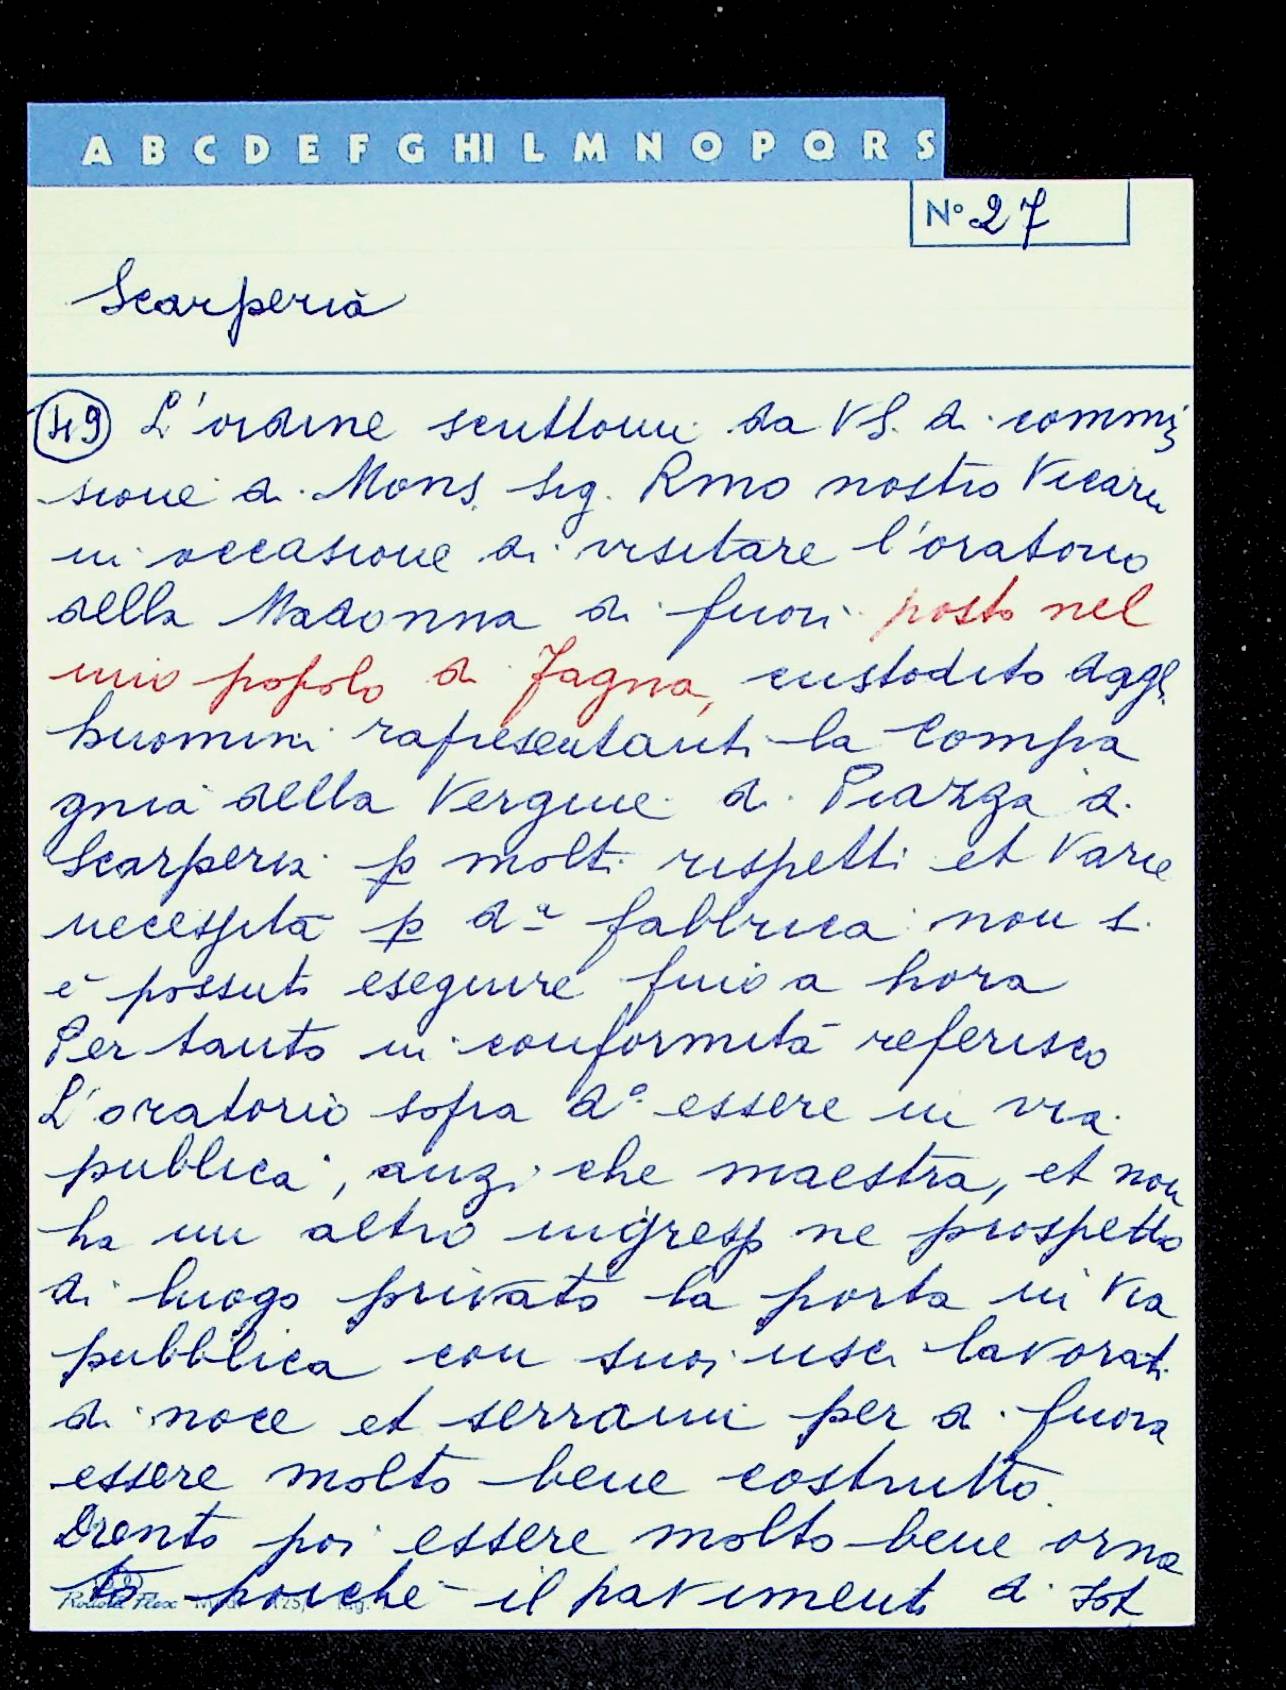 A B C D E F G HI L M N O P Q R S
Nº 27
Scarperia
49 L'ordine scrittomi da VS. di commis
sione di Mons. Sig. Rmo nostro Vicario
in occasione di visitare l'oratorio
della Madonna di fuori posto nel
mio popolo di Fagna, custodito dagl.
huomini rapresentanti la Compa
gnia della Vergine di Piazza di
Scarperia p molti rispetti et varie
necessità p dª fabbrica non si
è possuto eseguire fino a hora
Per tanto in conformità referisco
L'oratorio sopra dº essere in via
publica, anzi che maestra, et non
ha un altro ingresso ne prospetto
di luogo privato la porta in via
pubblica con suoi usci lavorati
di noce et serrami per di fuora
essere molto bene costrutto.
Drento poi essere molto bene orna
to poiché il pavimento di sot
Rotola Flex